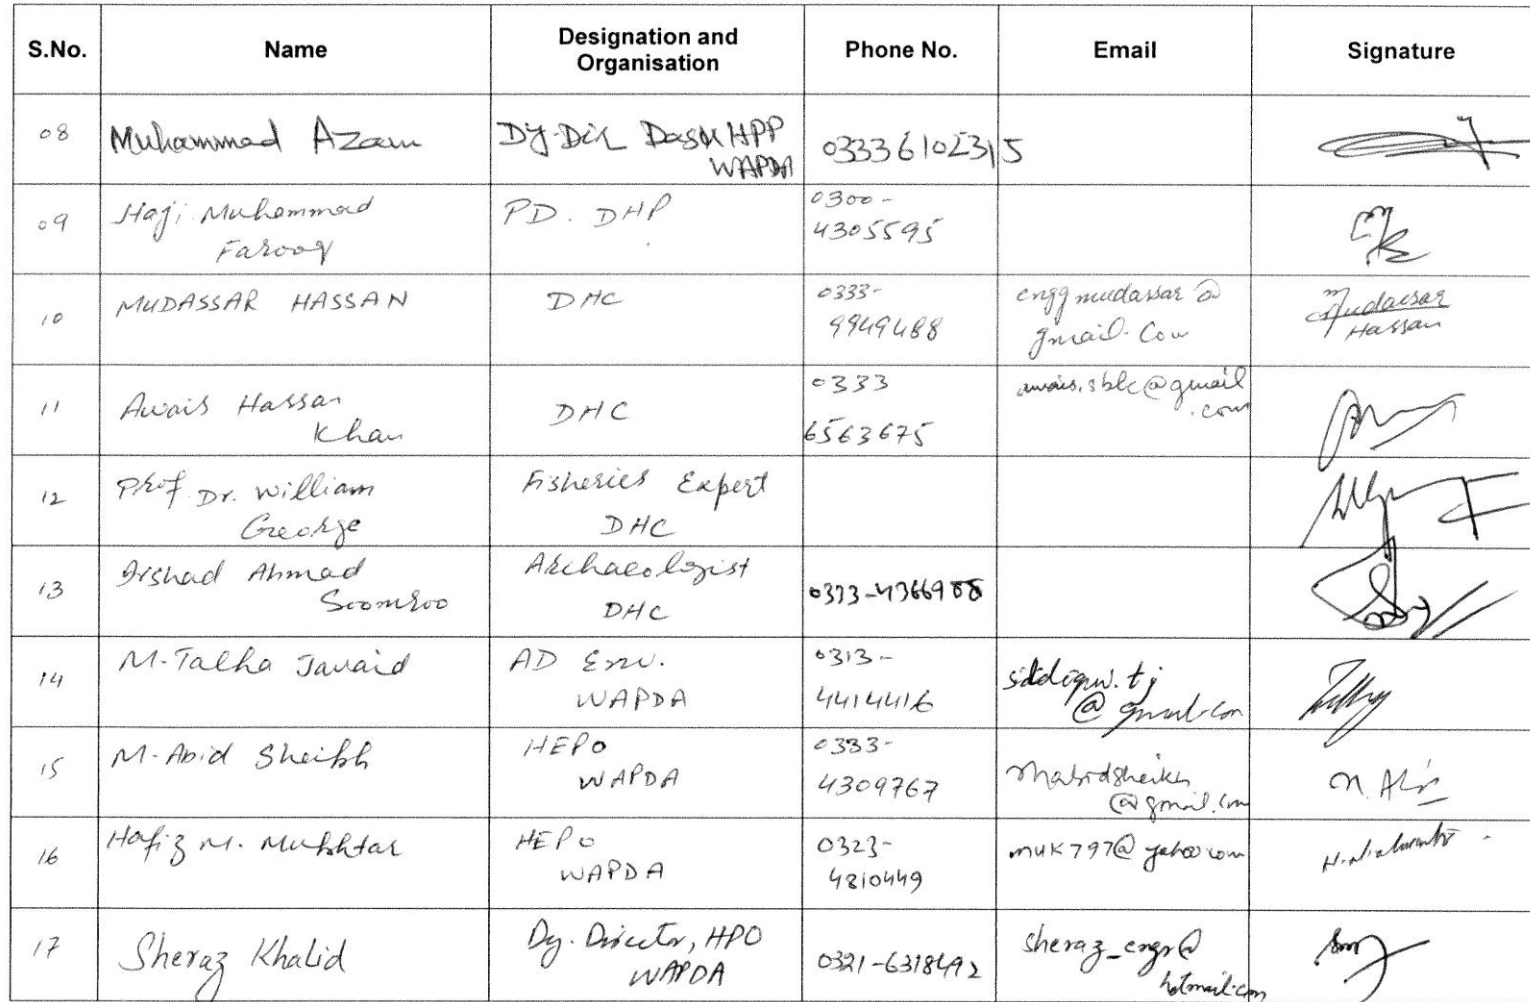 S.No. Name Designation and Organisation Phone No. Email Signature
08 Muhammad Azam Dy-Dir Dasu HPP WAPDA 03336102315
09 Haji Muhammad Farooq PD. DHP 0300-4305595
10 MUDASSAR HASSAN DHC 0333-9949488 enggmudassar@gmail.com Mudassar Hassan
11 Awais Hassan Khan DHC 0333 6563675 awais.sblc@gmail.com
12 Prof. Dr. William George Fisheries Expert DHC
13 Irshad Ahmad Soomroo Archaeologist DHC
14 M-Talha Javaid AD Env. WAPDA 0313-4414416 @gmail.com
15 M-Abid Sheikh HEPO WAPDA 0333-4309767 mabidsheikh@gmail.com M. Abid
16 Hafiz M. Mukhtar HEPO WAPDA 0323-4810449 muk797@yahoo.com
17 Sheraz Khalid Dy. Director, HPO WAPDA 0321-6318492 sheraz_engr@hotmail.com